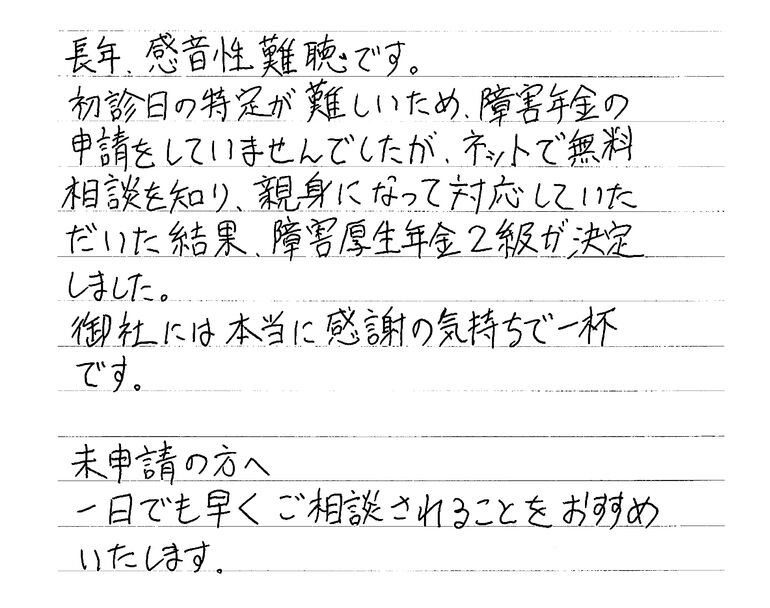 長年、感音性難聴です。
初診日の特定が難しいため、障害年金の
申請をしていませんでしたが、ネットで無料
相談を知り、親身になって対応していた
だいた結果、障害厚生年金2級が決定
しました。
御社には本当に感謝の気持ちで一杯
です。
未申請の方へ
一日でも早くご相談されることをおすすめ
いたします。